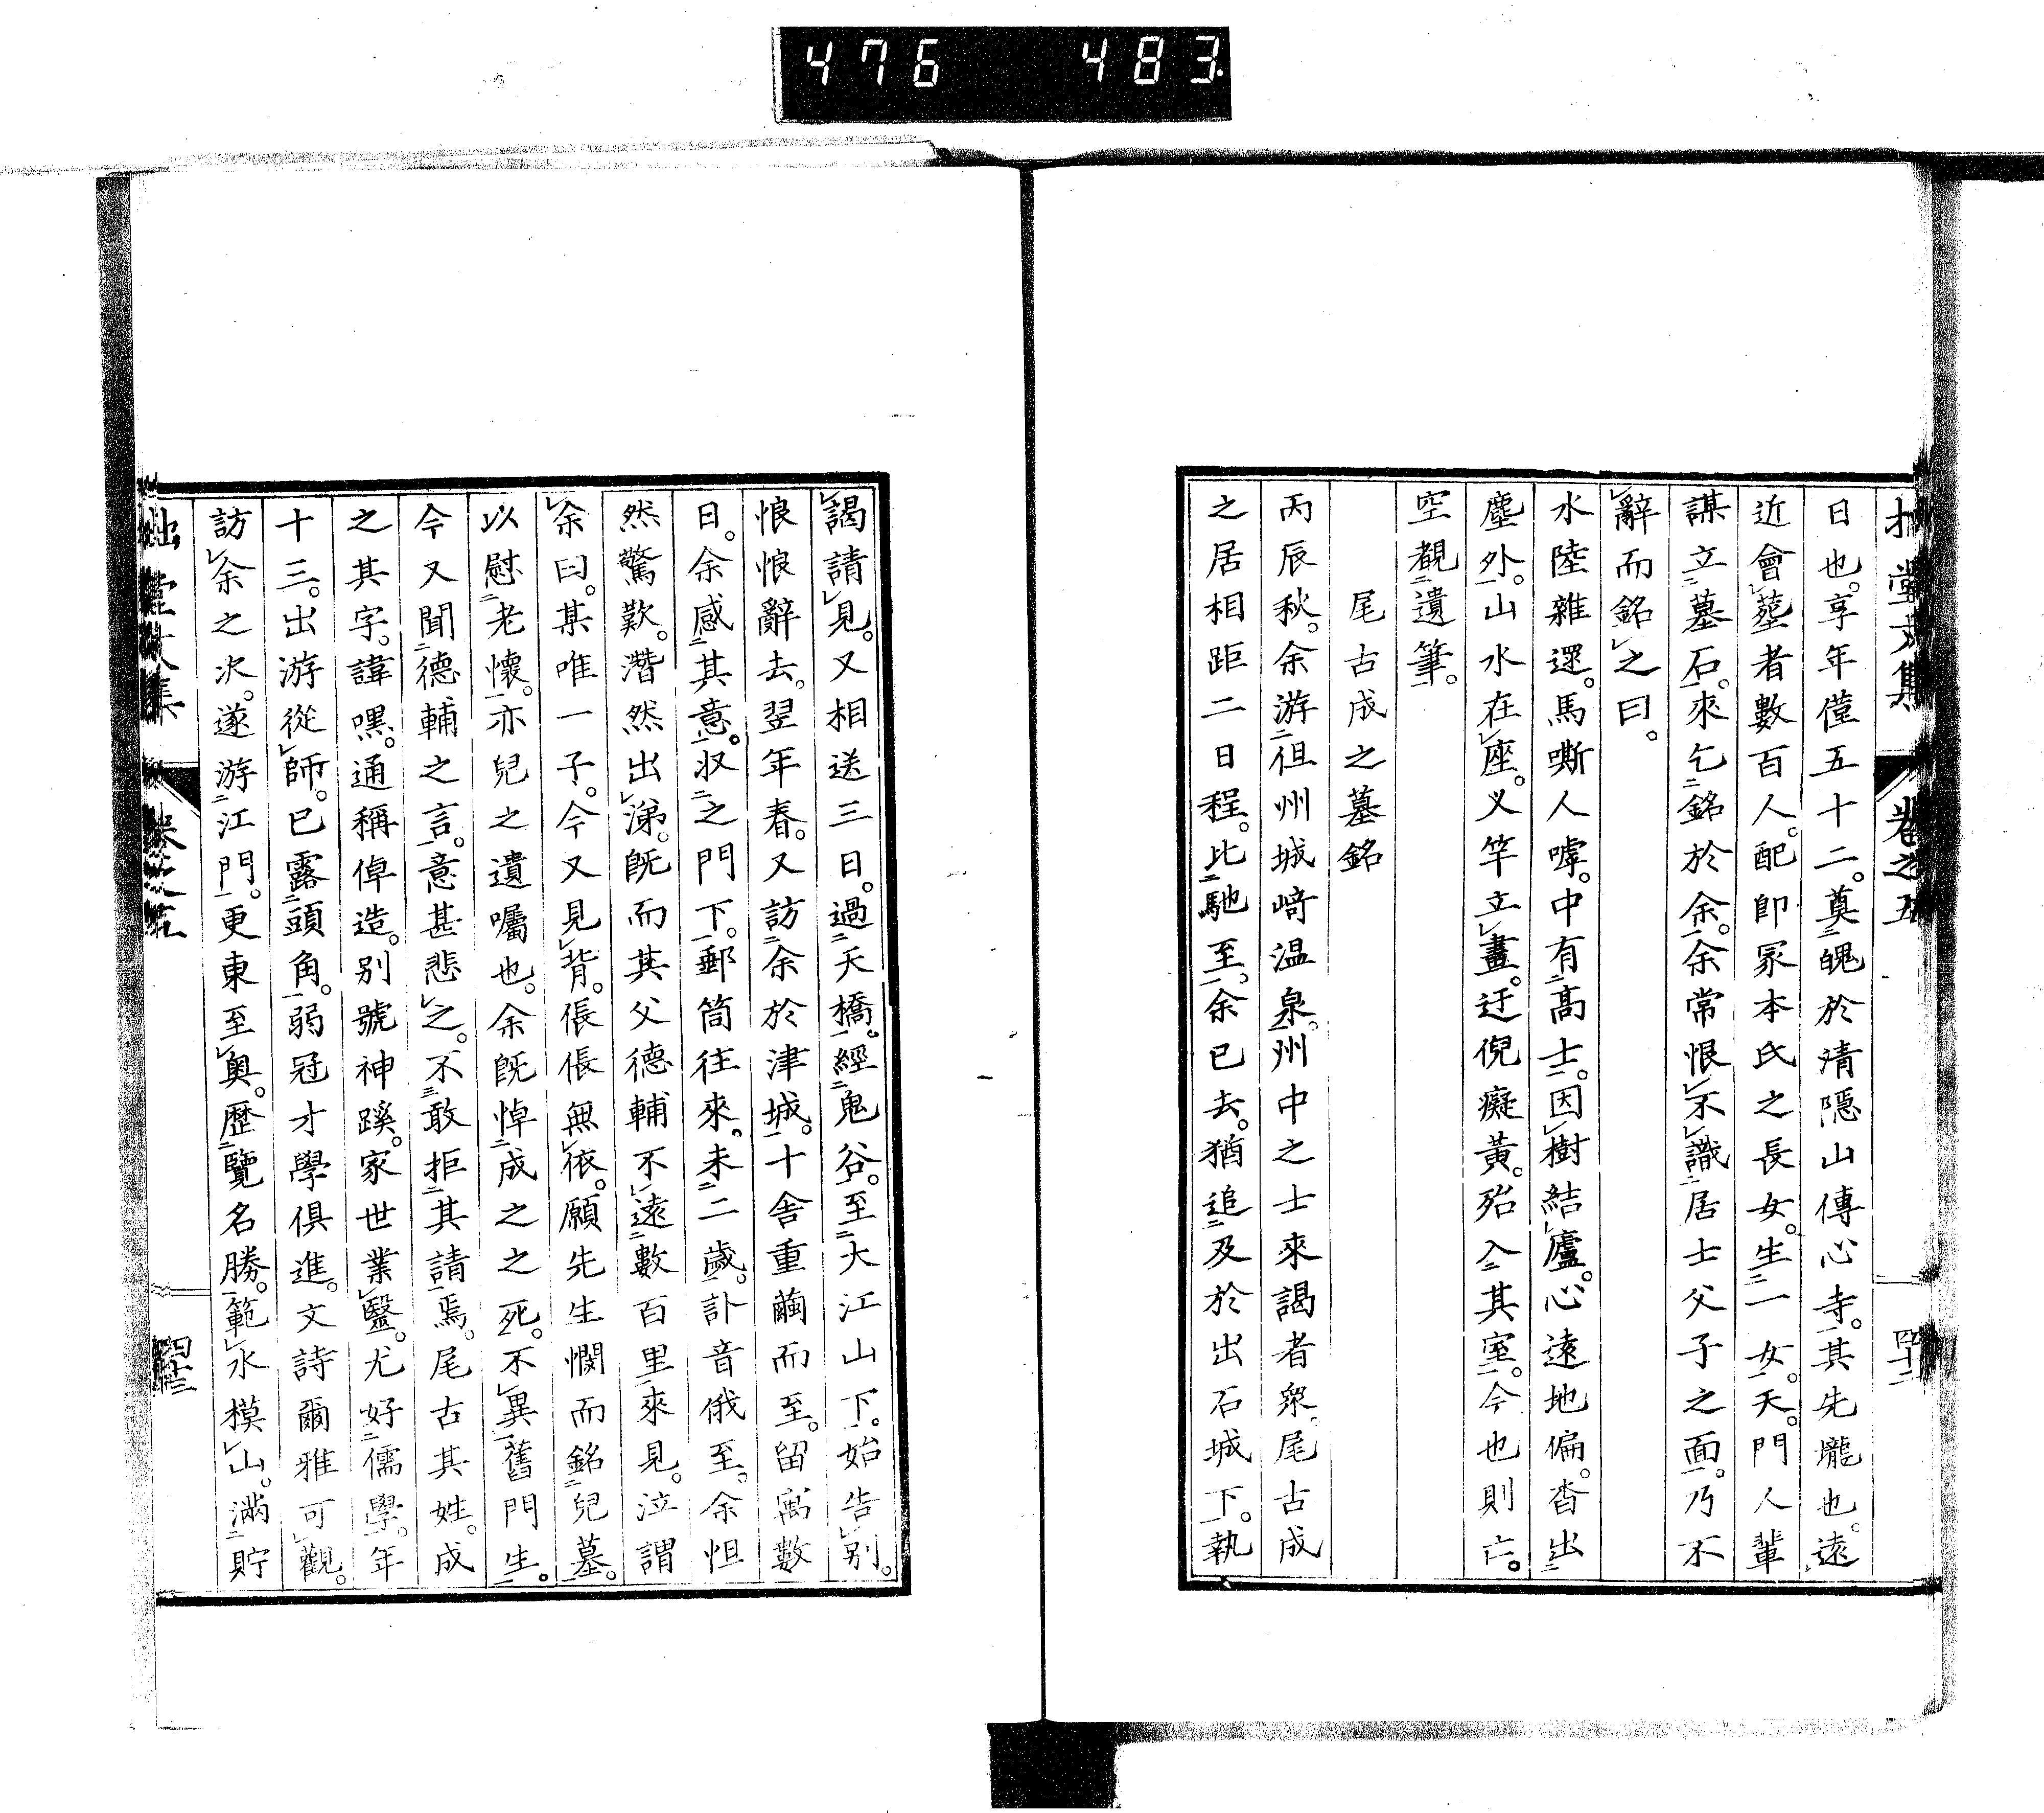 476 483
拙堂文集 卷之五 四十二
日也。享年僅五十二。奠魄於清隱山傳心寺。其先壠也。遠
近會葬者數百人。配卽冢本氏之長女。生一女。夭。門人輩
謀立墓石。來乞銘於余。余常恨不識居士父子之面。乃不
辭而銘之曰。
水陸雜遝。馬嘶人嘑。中有高士。因樹結廬。心遠地偏。杳出
塵外。山水在座。乂竿立畫。迂倪癡黃。殆入其室。今也則亡。
空覩遺筆。
尾古成之墓銘
丙辰秋。余游徂州城崎温泉。州中之士來謁者衆。尾古成
之居相距二日程。比馳至。余已去。猶追及於出石城下。執
謁請見。又相送三日。過天橋。經鬼谷。至大江山下。始告別。
悢悢辭去。翌年春。又訪余於津城。十舍重繭而至。留寓數
日。余感其意。收之門下。郵筒往來。未二歲。訃音俄至。余怛
然驚歎。潸然出涕。旣而其父德輔不遠數百里來見。泣謂
余曰。某唯一子。今又見背。倀倀無依。願先生憫而銘兒墓。
以慰老懷。亦兒之遺囑也。余旣悼成之之死。不異舊門生。
今又聞德輔之言。意甚悲之。不敢拒其請焉。尾古其姓。成
之其字。諱嘿。通稱倬造。別號神蹊。家世業醫。尤好儒學。年
十三。出游從師。已露頭角。弱冠才學俱進。文詩爾雅可觀。
訪余之次。遂游江門。更東至奧。歷覽名勝。範水模山。滿貯
拙堂文集 卷之五 四十三